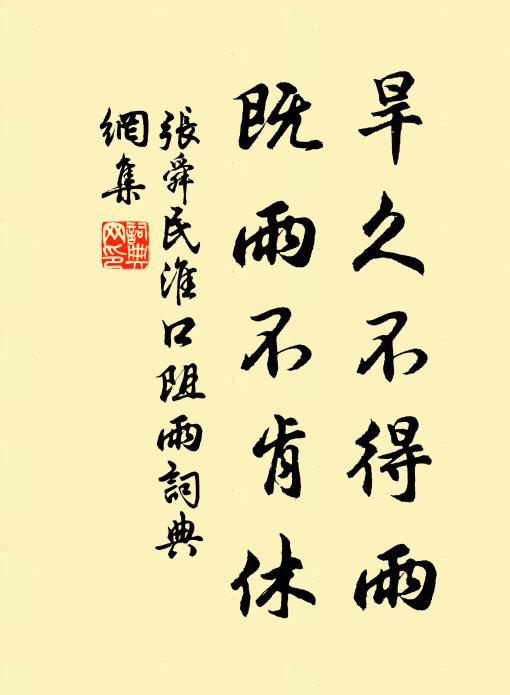 旱久不得雨
既雨不肯休
張舜民淮口阻雨詞典
網集
詞典
网印